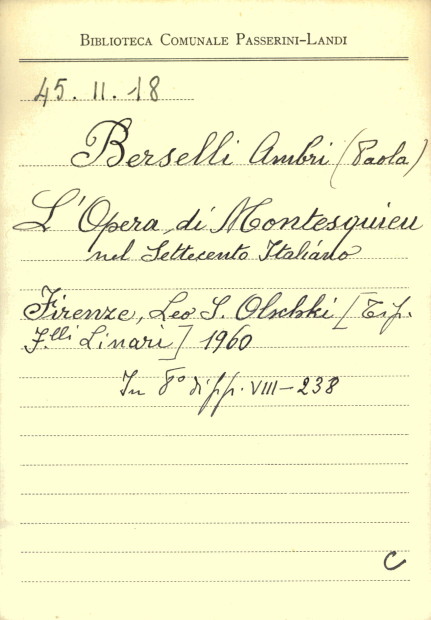 BIBLIOTECA COMUNALE PASSERINI-LANDI
45. II. 18
Berselli Ambri (Paola)
L'Opera di Montesquieu
nel Settecento Italiano
Firenze, Leo S. Olschki [Tip.
F.lli Linari] 1960
In 8° di pp. VIII-238
C